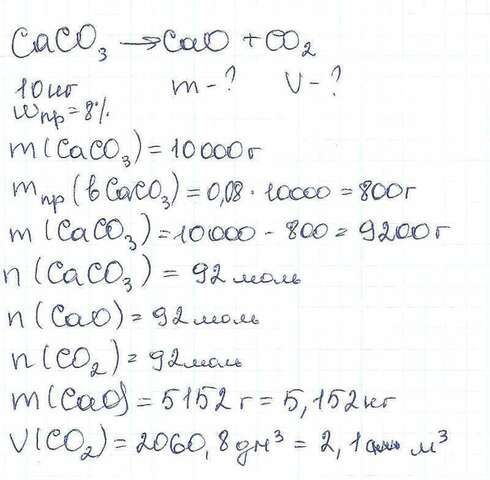 CaCO₃ → CaO + CO₂
10 кг m - ? V - ?
wпр = 8%
m (CaCO₃) = 10000 г
mпр (в CaCO₃) = 0,08 · 10000 = 800 г
m (CaCO₃) = 10000 - 800 = 9200 г
n (CaCO₃) = 92 моль
n (CaO) = 92 моль
n (CO₂) = 92 моль
m (CaO) = 5152 г = 5,152 кг
V (CO₂) = 2060,8 дм³ = 2,1 м³